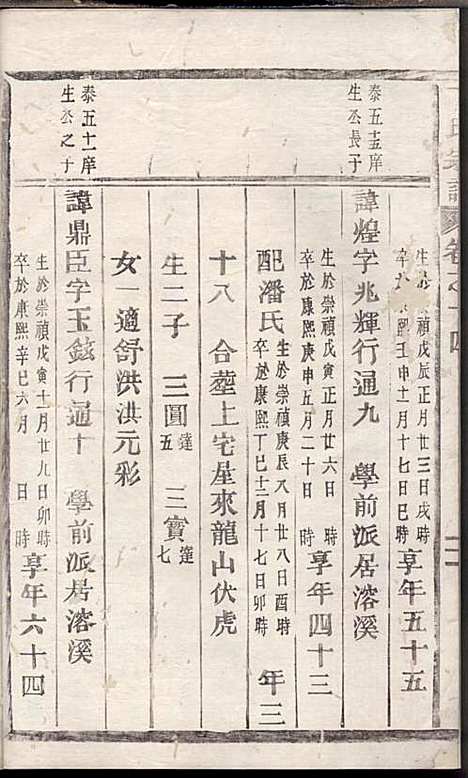 氏宗譜 卷之十四 二
生於崇禎戊辰正月廿三日戌時
卒於康熙壬申十一月十七日巳時 享年五十五
泰五十五庠生公長子
諱煌字兆輝行通九 學前派居溶溪
生於崇禎戊寅正月廿六日 時
卒於康熙庚申五月二十日 時 享年四十三
配潘氏 生於崇禎庚辰八月廿八日酉時 卒於康熙丁巳十二月十七日卯時 年三
十八 合塟上宅星來龍山伏虎
生二子 三圓達五 三寳達七
女一適舒洪洪元彩
泰五十一庠生公之子
諱鼎臣字玉鉉行通十 學前派居溶溪
生於崇禎戊寅十一月廿九日卯時
卒於康熙辛巳六月 日 時 享年六十四